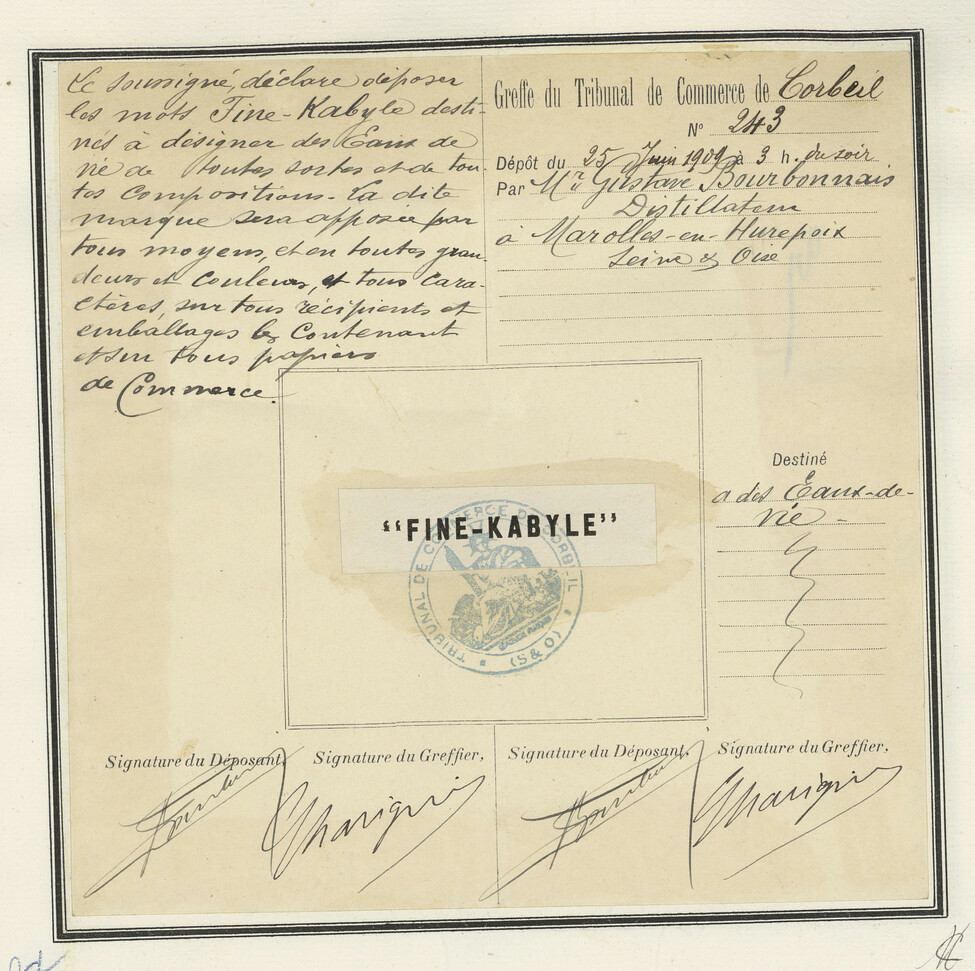 Le soussigné, déclare déposer
les mots Fine-Kabyle desti-
nés à désigner des Eaux de
vie de toutes sortes et de tou-
tes compositions. La dite
marque sera apposée par
tous moyens, et en toutes gran-
deurs et couleurs, et tous cara-
ctères, sur tous récipients et
emballages les contenant
et sur tous papiers
de Commerce.
Greffe du Tribunal de Commerce de Corbeil
N° 243
Dépôt du 25 Juin 1909 à 3 h. du soir
Par Mr Gustave Bourbonnais
Distillateur
à Marolles-en-Hurepoix
Seine & Oise
"FINE-KABYLE"
TRIBUNAL DE COMMERCE DE CORBEIL
(S & O)
Destiné
a des Eaux-de-
vie -
Signature du Déposant, Signature du Greffier,
Signature du Déposant, Signature du Greffier,